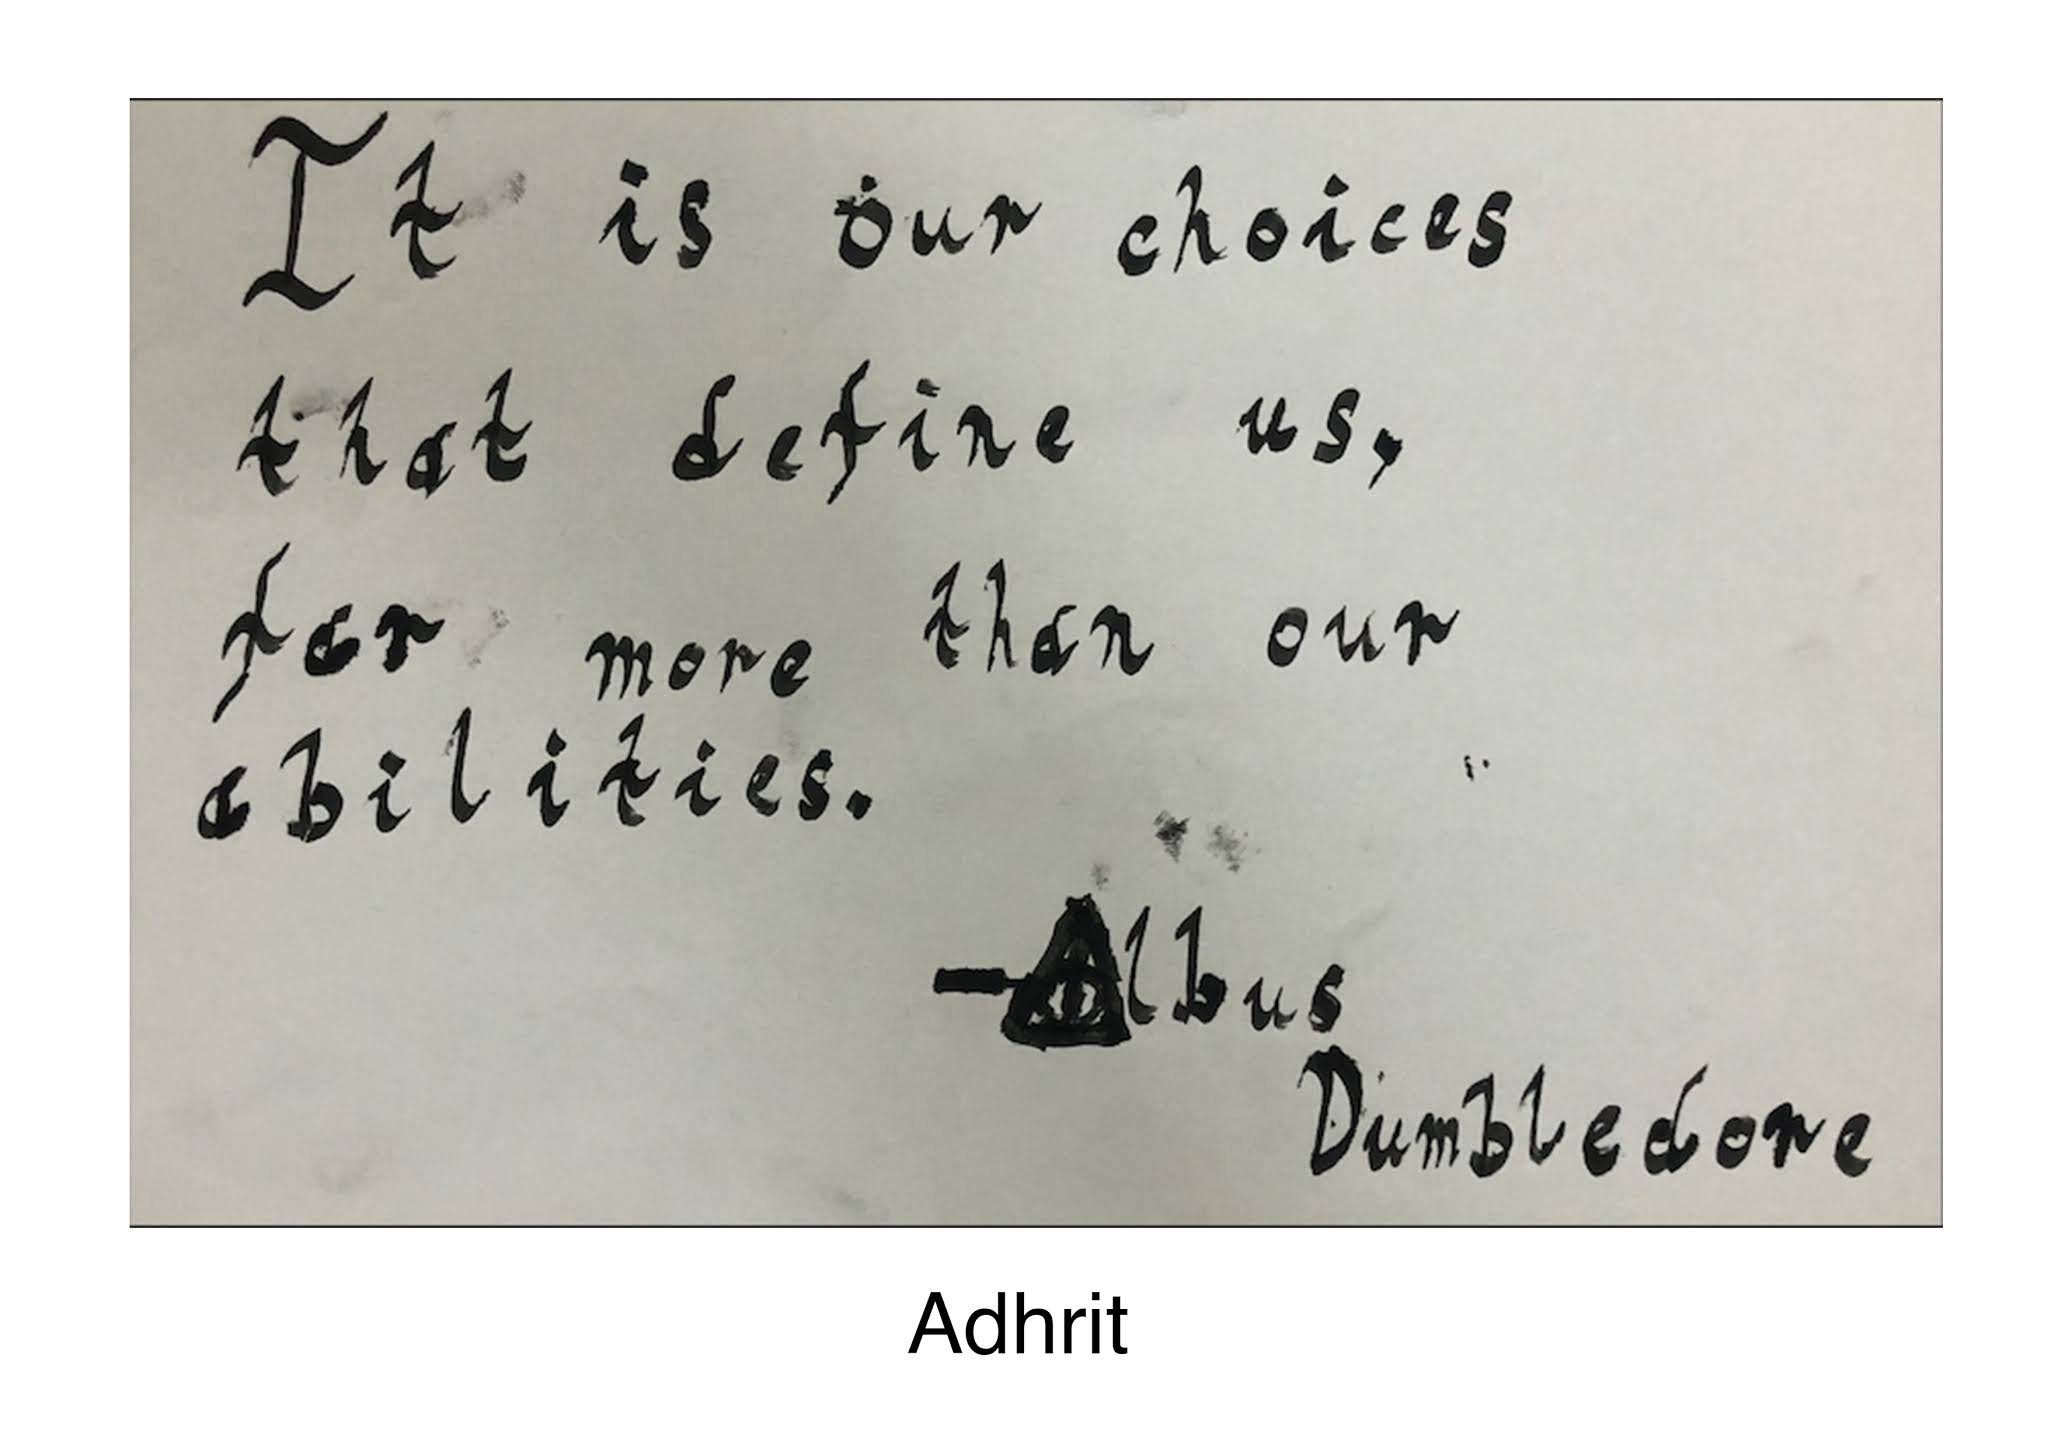 It is our choices
that define us,
far more than our
abilities.
-Albus
Dumbledore
Adhrit